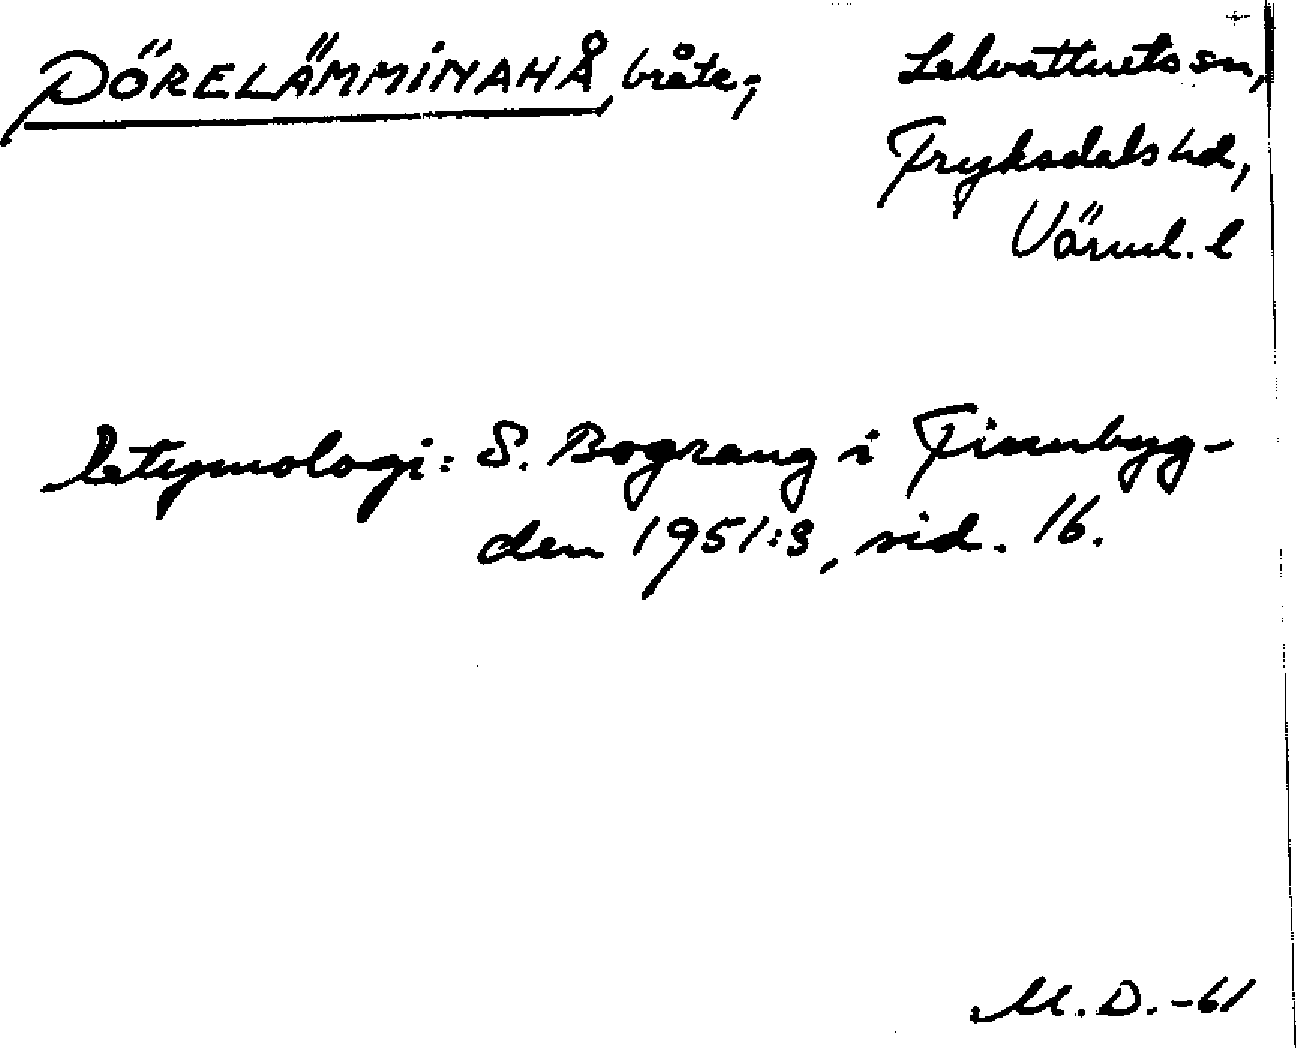 PÖRELÄMMINAHÅ, bråte; Lekvattnets sn,
Fryksdals hd,
Värml. l
Etymologi: S. Bograng i Finnbyg-
den 1951:3, sid. 16.
M. D. -61